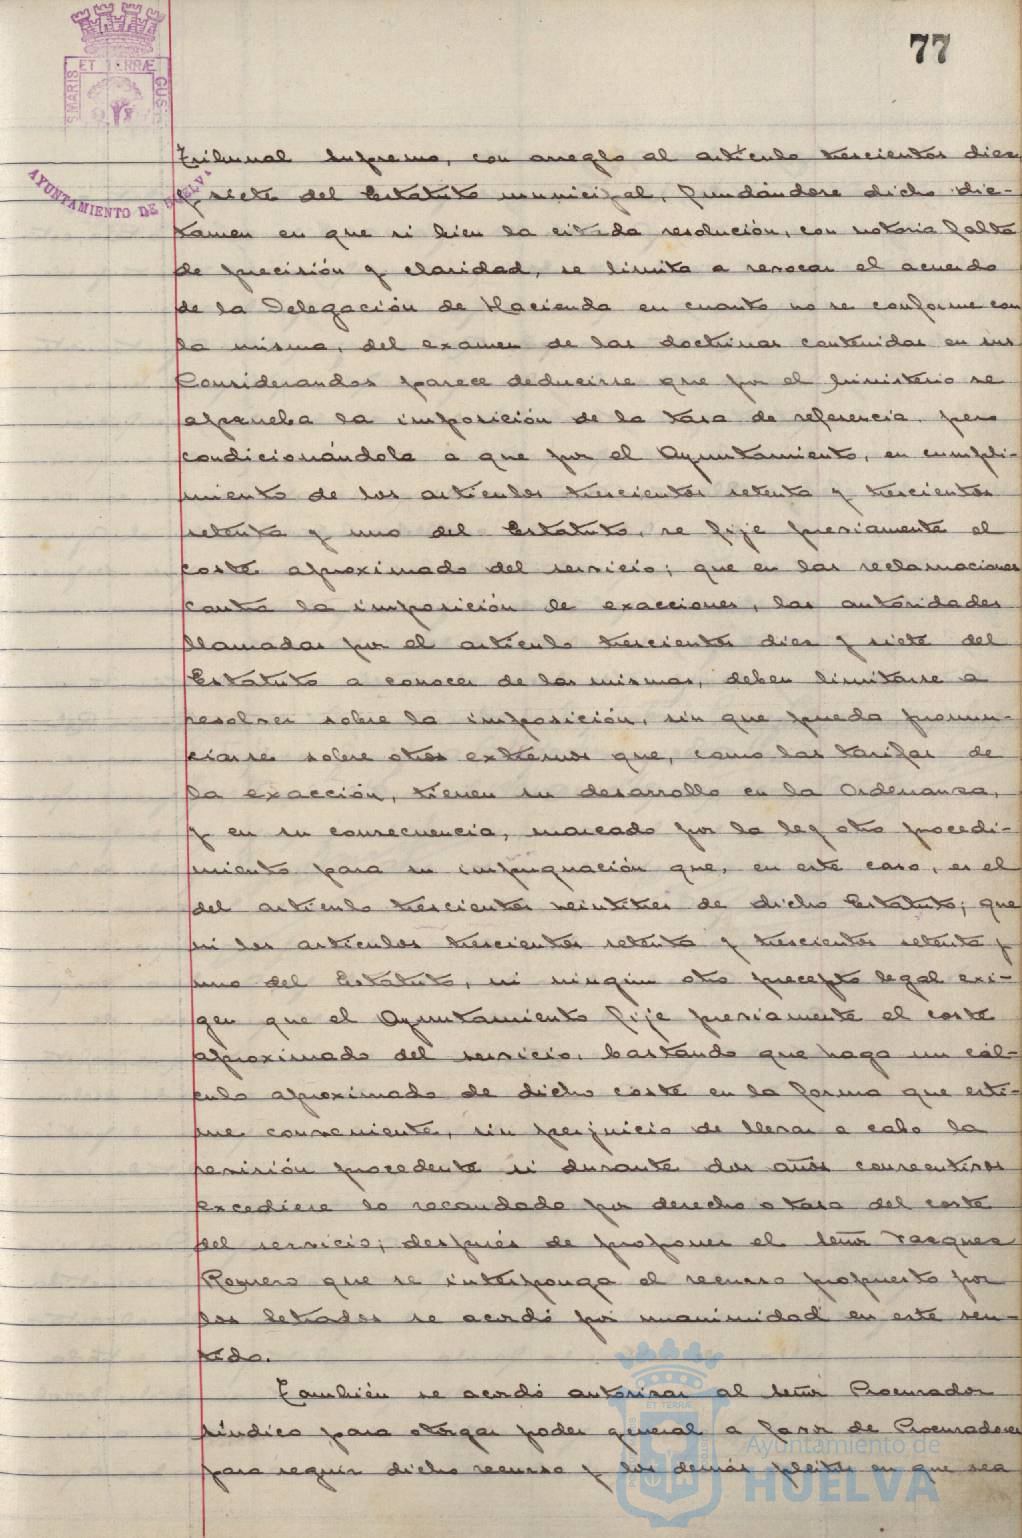 77
SMARIS ET TERRÆ CUS
AYUNTAMIENTO DE HUELVA
Tribunal Supremo, con arreglo al artículo trescientos diez
y siete del Estatuto municipal, fundándose dicho dic-
tamen en que si bien la citada resolución, con notoria falta
de precisión y claridad, se limita a revocar el acuerdo
de la Delegación de Hacienda en cuanto no se conforme con
la misma, del examen de las doctrinas contenidas en sus
Considerandos parece deducirse que por el Ministerio se
aprueba la imposición de la tasa de referencia pero
condicionándola a que por el Ayuntamiento, en cumpli-
miento de los artículos trescientos setenta y trescientos
setenta y uno del Estatuto, se fije previamente el
coste aproximado del servicio; que en las reclamaciones
contra la imposición de exacciones, las autoridades
llamadas por el artículo trescientos diez y siete del
Estatuto a conocer de las mismas, deben limitarse a
resolver sobre la imposición, sin que pueda pronun-
ciarse sobre otros extremos que, como las tarifas de
la exacción, tienen su desarrollo en la Ordenanza,
y en su consecuencia, marcado por la ley otro procedi-
miento para su impugnación que, en este caso, es el
del artículo trescientos veintitres de dicho Estatuto; que
ni los artículos trescientos setenta y trescientos setenta y
uno del Estatuto, ni ningún otro precepto legal exi-
gen que el Ayuntamiento fije previamente el coste
aproximado del servicio, bastando que haga un cál-
culo aproximado de dicho coste en la forma que esti-
me conveniente, sin perjuicio de llevar a cabo la
revisión procedente si durante dos años consecutivos
excediere lo recaudado por derecho o tasa del coste
del servicio; después de proponer el señor Vazquez
Romero que se interponga el recurso propuesto por
los letrados se acordó por unanimidad en este sen-
tido.
También se acordó autorizar al señor Procurador
Síndico para otorgar poder general a favor de Procuradores
para seguir dicho recurso y los demás pleitos en que sea
ET TERRÆ
Ayuntamiento de
HUELVA